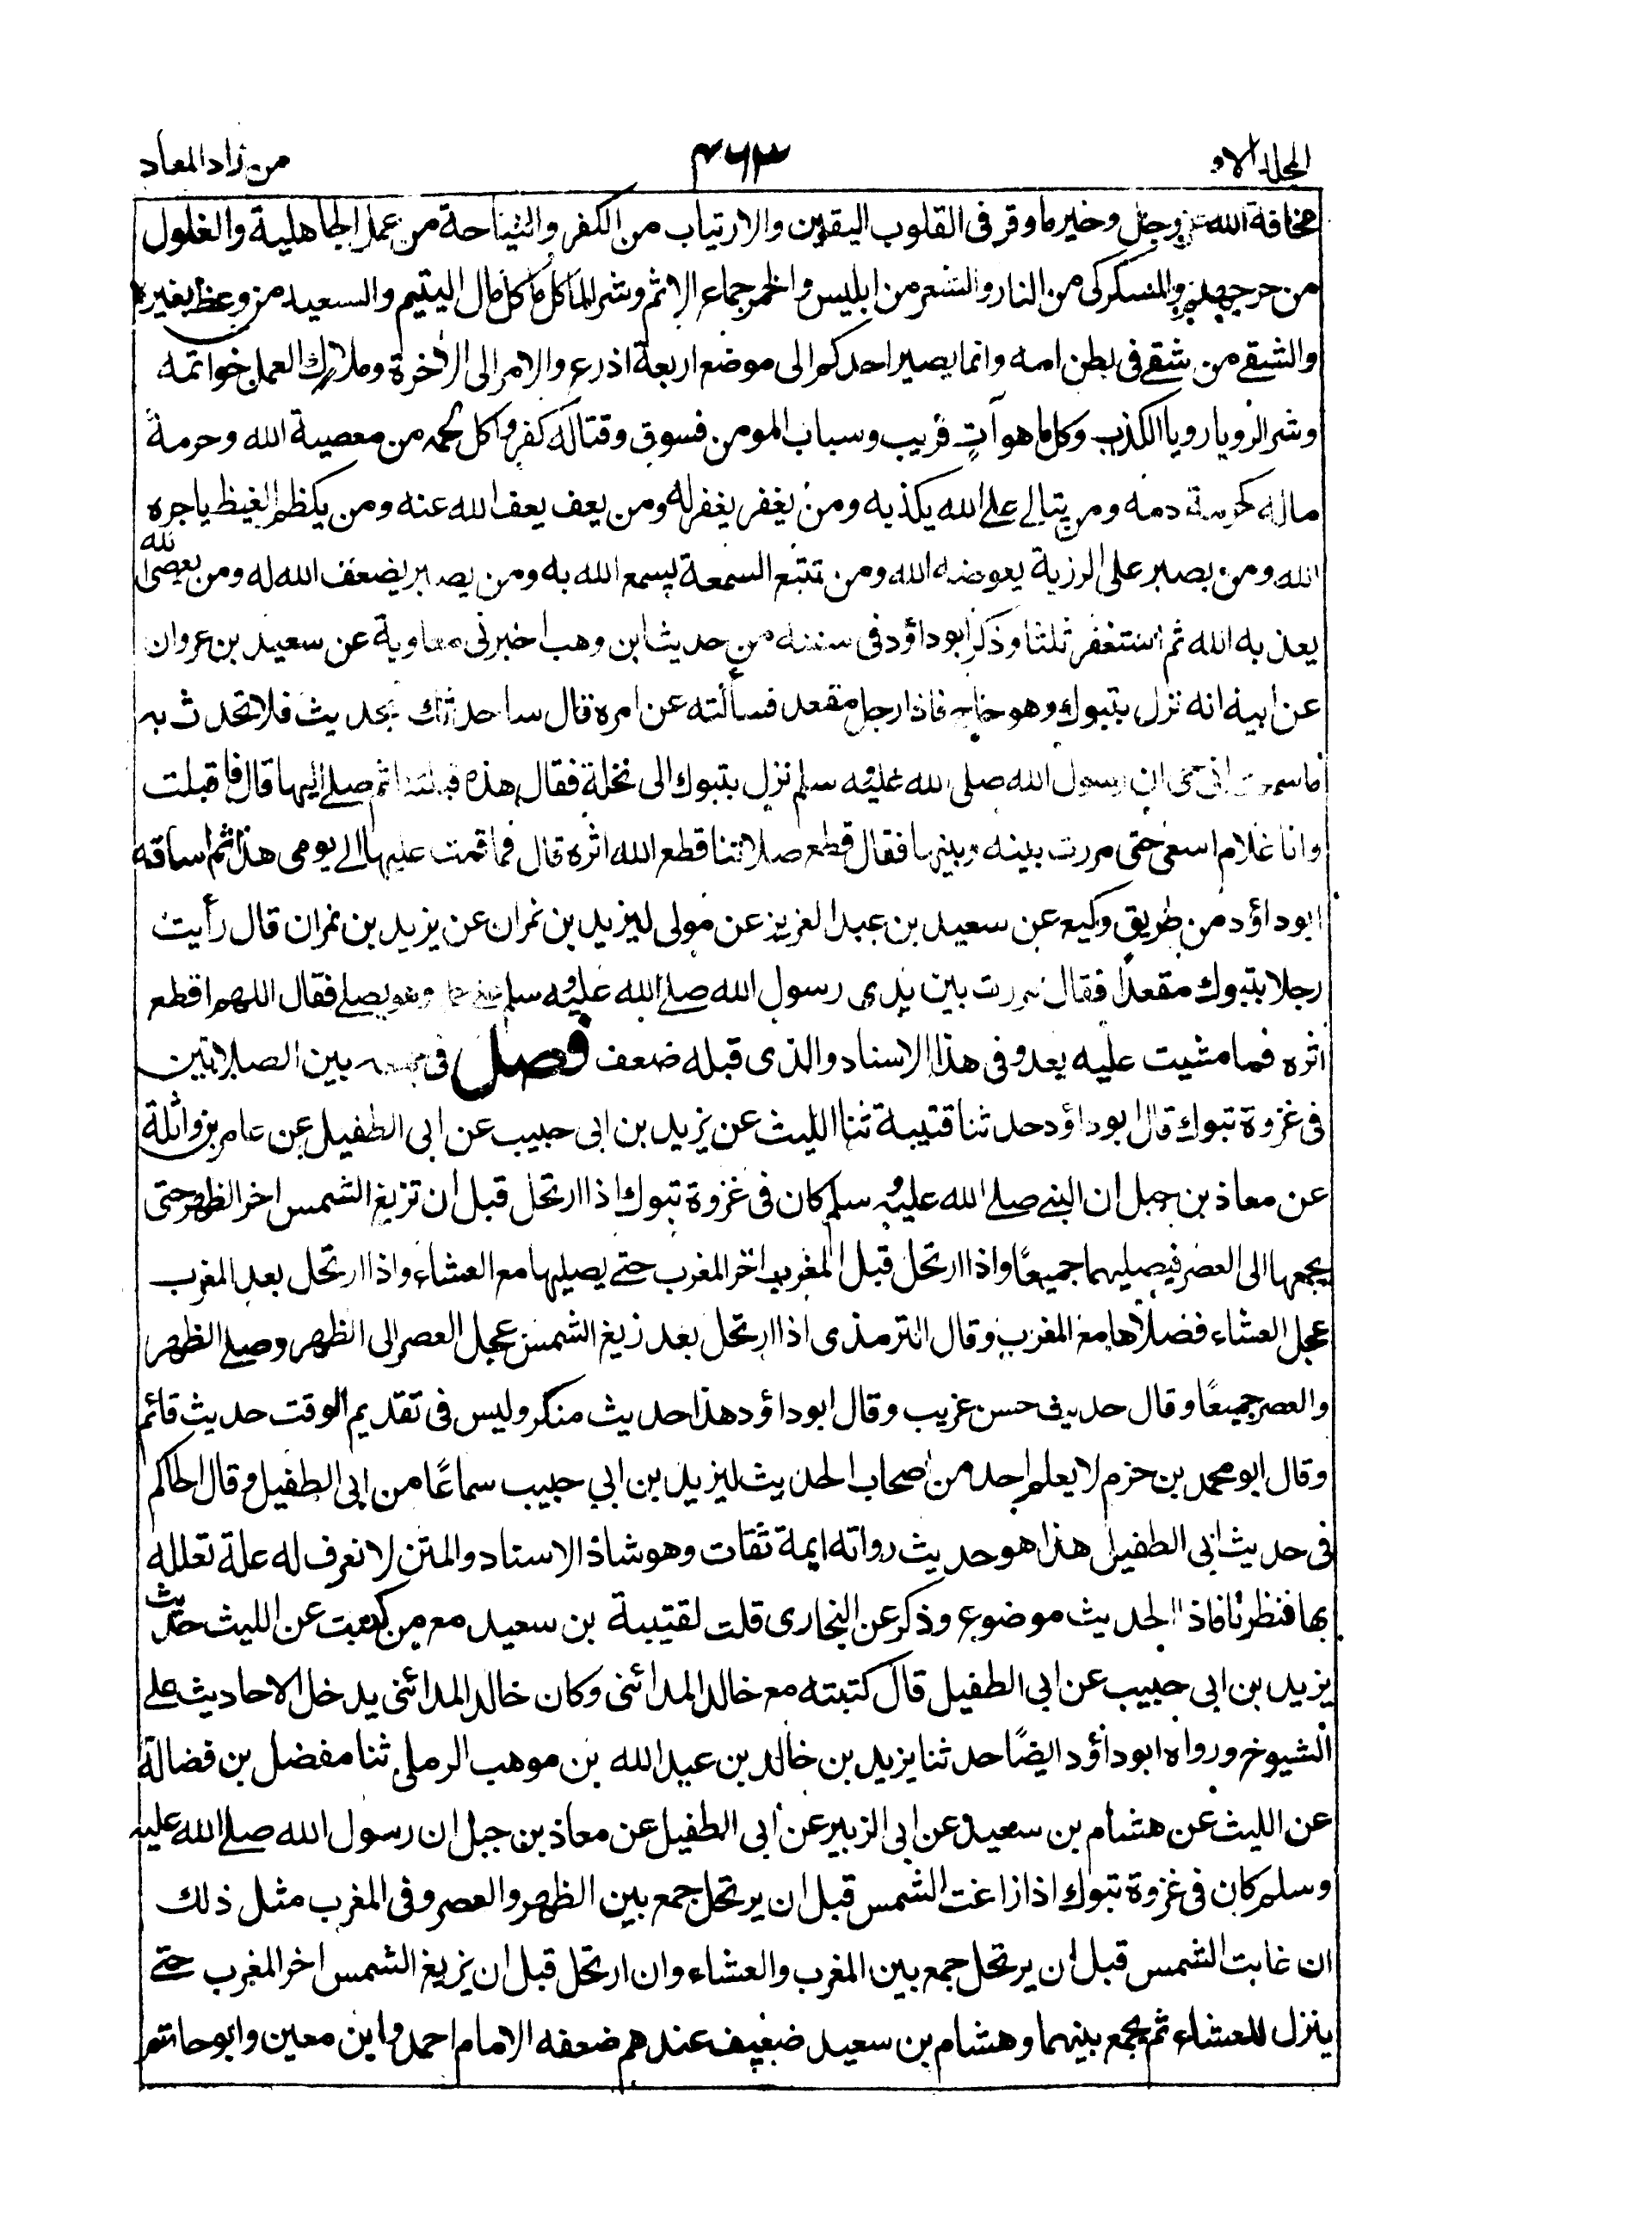 المجلد الاو
۴۶۳
من زاد المعاد
مخافة الله عزوجل وخير ما وقر فى القلوب اليقين والارتياب من الكفر والنياحة من عمل الجاهلية والغلول
من حر جهنم والسكر كى من النار والشعر من ابليس والخمر جماع الاثم وشر المأكل ما كل مال اليتيم والسعيد من وعظ بغيره
والشقے من شقے فى بطن امه وانما يصير احدكم الى موضع اربعة اذرع والامر الى الاخرة وملاك العمل خواتمه
وشر الرويا رويا الكذب وكل ما هو آتٍ قريب وسباب المومن فسوق وقتاله كفر واكل لحمه من معصية الله وحرمة
ماله كحرمة دمه ومن يتالے علے الله يكذبه ومن يغفر يغفر له ومن يعف يعف الله عنه ومن يكظم الغيظ ياجره
الله ومن يصبر على الرزية يعوضه الله ومن تتبع السمعة يسمع الله به ومن يصبر يضعف الله له ومن يعصى الله
يعذبه الله ثم استغفر ثلثا وذكر ابو داؤد فى سننه من حديث ابن وهب اخبرنى معاوية عن سعيد بن عروان
عن ابيه انه نزل بتبوك وهو حاج فاذا رجل مقعد فسألته عن امره قال ساحدثك بحديث فلا تحدث به
ما سمعت انى حى ان رسول الله صلى الله عليه وسلم نزل بتبوك الى نخلة فقال هذه قبلتنا ثم صلے اليها قال فاقبلت
وانا غلام اسعى حتى مررت بينه وبينها فقال قطع صلاتنا قطع الله اثره قال فما قمت عليها الے يومى هذا ثم اساقه
ابو داؤد من طريق وكيع عن سعيد بن عبد العزيز عن مولى ليزيد بن نمران عن يزيد بن نمران قال رأيت
رجلا بتبوك مقعدا فقال مررت بين يدى رسول الله صلے الله عليه وسلم وهو يصلے فقال اللهم اقطع
اثره فما مشيت عليه بعد وفى هذا الاسناد والذى قبله ضعف فصل فى جمعه بين الصلاتين
فى غزوة تبوك قال ابو داؤد حدثنا قتيبة ثنا الليث عن يزيد بن ابى حبيب عن ابى الطفيل عن عامر بن واثلة
عن معاذ بن جبل ان النبے صلے الله عليه وسلم كان فى غزوة تبوك اذا ارتحل قبل ان تزيغ الشمس اخر الظهر حتى
يجمعها الى العصر فيصليهما جميعًا واذا ارتحل قبل المغرب اخر المغرب حتے يصليها مع العشاء واذا ارتحل بعد المغرب
عجل العشاء فصلاها مع المغرب وقال الترمذى اذا ارتحل بعد زيغ الشمس عجل العصر الى الظهر وصلے الظهر
والعصر جميعًا وقال حديث حسن غريب وقال ابو داؤد هذا حديث منكر وليس فى تقديم الوقت حديث قائم
وقال ابو محمد بن حزم لا يعلم احد من اصحاب الحديث ليزيد بن ابي حبيب سماعًا من ابى الطفيل وقال الحاكم
فى حديث ابى الطفيل هذا هو حديث رواته ايمة ثقات وهو شاذ الاسناد والمتن لا نعرف له علة تعلله
بها فنظرنا فاذا الحديث موضوع وذكر عن البخارى قلت لقتيبة بن سعيد مع من كتبت عن الليث حديث
يزيد بن ابى حبيب عن ابى الطفيل قال كتبته مع خالد المدائنى وكان خالد المدائنى يدخل الاحاديث علے
الشيوخ ورواه ابو داؤد ايضًا حدثنا يزيد بن خالد بن عبد الله بن موهب الرملى ثنا مفضل بن فضالة
عن الليث عن هشام بن سعيد عن ابى الزبير عن ابى الطفيل عن معاذ بن جبل ان رسول الله صلے الله عليه
وسلم كان فى غزوة تبوك اذا زاغت الشمس قبل ان يرتحل جمع بين الظهر والعصر وفى المغرب مثل ذلك
ان غابت الشمس قبل ان يرتحل جمع بين المغرب والعشاء وان ارتحل قبل ان يزيغ الشمس اخر المغرب حتے
ينزل للعشاء ثم يجمع بينهما وهشام بن سعيد ضعيف عندهم ضعفه الامام احمد وابن معين وابو حاتم